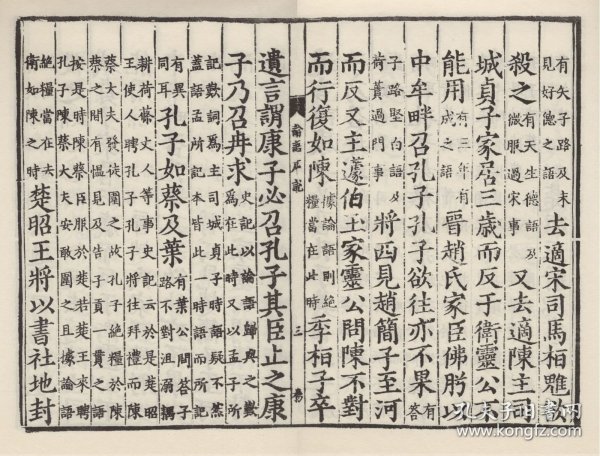 有矢子路及未見好德之語去適宋司馬桓魋欲
殺之有天生德語及微服過宋事又去適陳主司
城貞子家居三歲而反于衛靈公不
能用有三年有成之語晉趙氏家臣佛肸以
中牟畔召孔子孔子欲往亦不果有答
子路堅白語及荷蕢過門事將西見趙簡子至河
而反又主蘧伯玉家靈公問陳不對
而行復如陳據論語則絶糧當在此時季桓子卒
論語序說 三
遺言謂康子必召孔子其臣止之康
子乃召冉求史記以論語歸與之歎爲在此時又以孟子所
記歎詞爲主司城貞子時語疑不然蓋語孟所記本皆此一時語而所記
有異同耳孔子如蔡及葉有葉公問答子路不對沮溺耦
耕荷蓧丈人等事史記云於是楚昭王使人聘孔子孔子將往拜禮而陳
蔡大夫發徒圍之故孔子絶糧於陳蔡之間有慍見及告子貢一貫之語
按是時陳蔡臣服於楚若楚王來聘孔子陳蔡大夫安敢圍之且據論語
絶糧當在去衛如陳之時楚昭王將以書社地封
孔夫子旧书网
www.kongfz.com